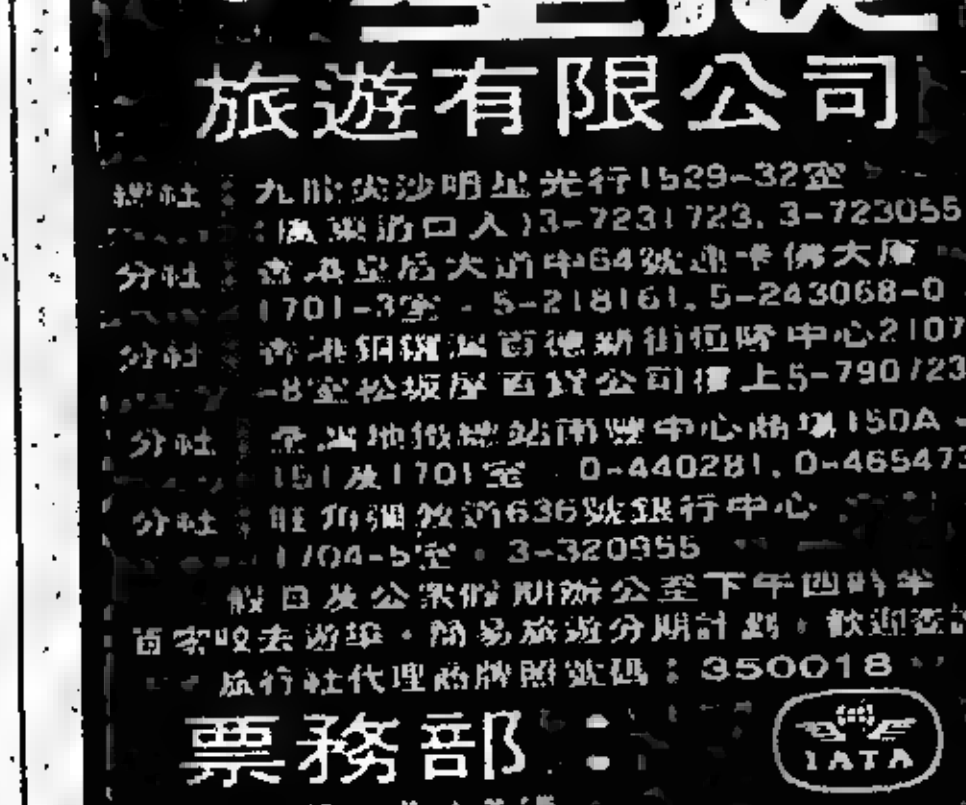 旅遊有限公司
總社:九龍尖沙咀星光行1529-32室
道口入)3-7231723, 3-723055
分社:香港皇后大道中64號連卡佛大廈
1701-3室 · 5-218161, 5-243068-0
分社 香港銅鑼灣百德新街恒隆中心2107
-8室松坂屋百貨公司樓上5-790723
分社 荃灣地鐵總站南豐中心商場150A
151及1701室 0-440281, 0-465473
分社:旺角彌敦道636號銀行中心
1704-5室 · 3-320955
假日及公眾假期辦公至下午四時半
百家 旅遊分期計劃 · 歡迎
旅行社代理商牌照號碼:350018
票務部:
IATA